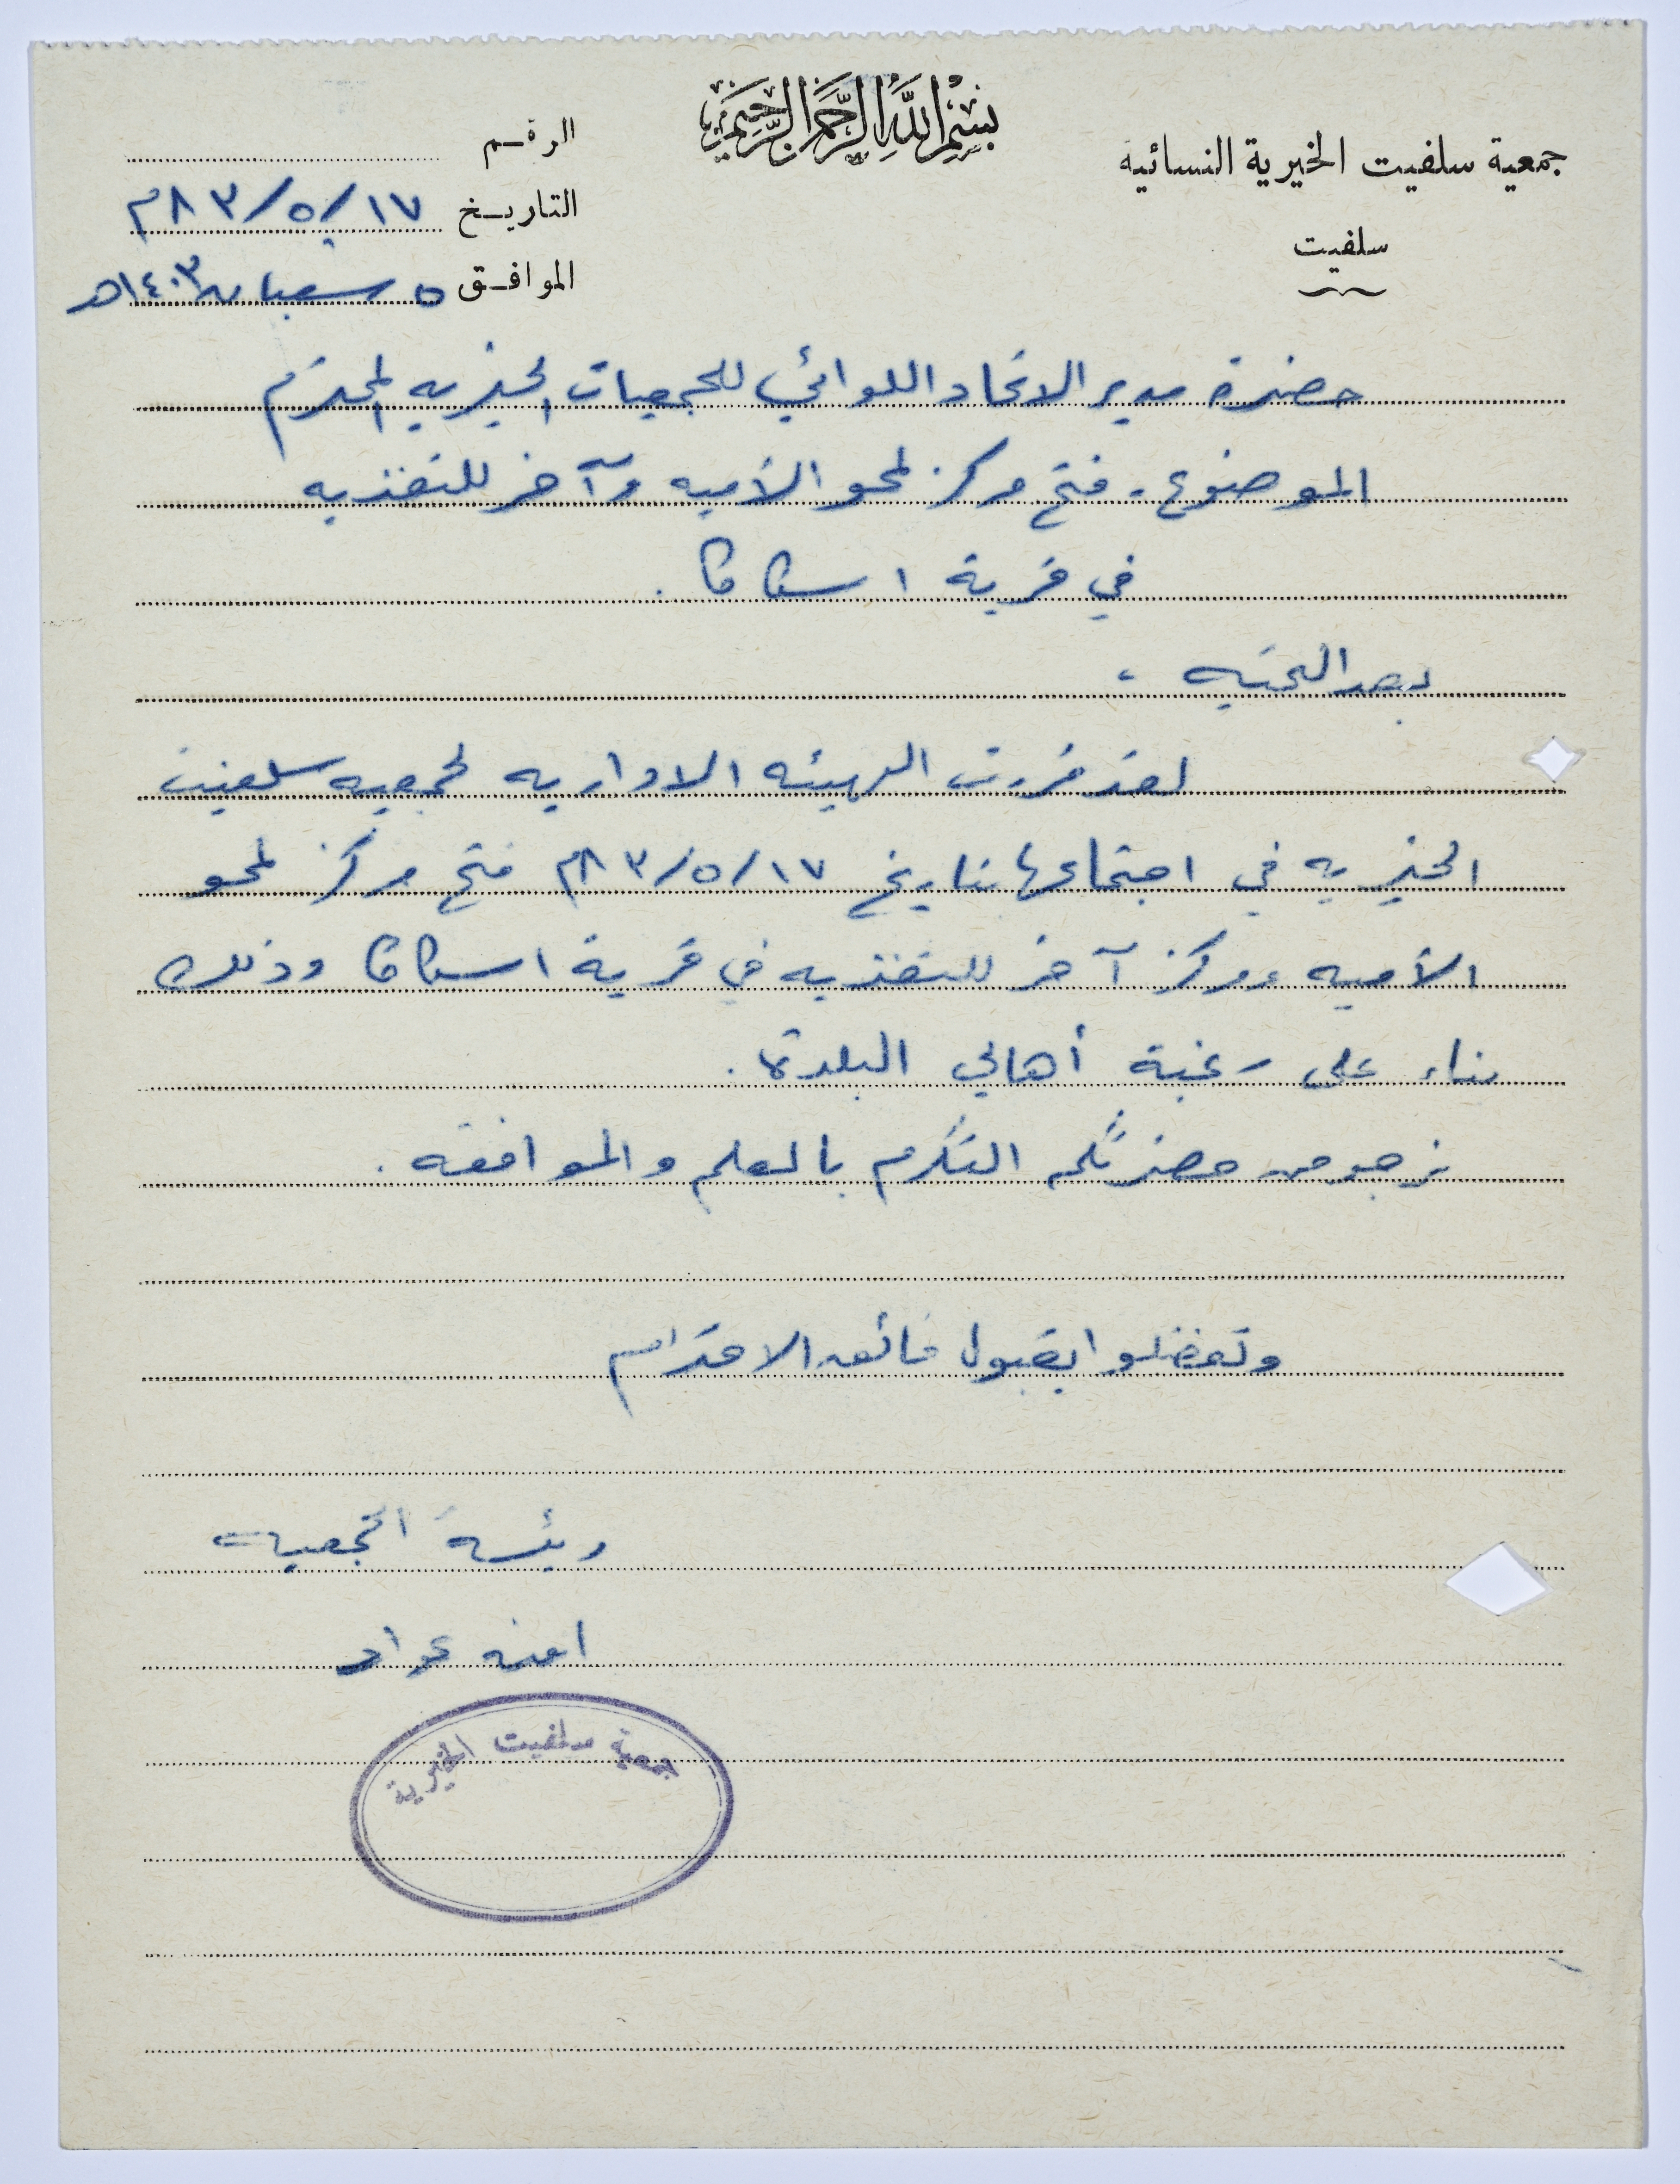 بسم الله الرحمن الرحيم
جمعية سلفيت الخيرية النسائية
سلفيت
الرقم
التاريخ ١٧/٥/٨٣م
الموافق ٥ شعبان ١٤٠٣هـ
حضرة مدير الاتحاد اللوائي للجمعيات الخيريه المحترم
الموضوع - فتح مركز لمحو الأميه وآخر للتغذيه
في قرية اسكاكا .
بعد التحيه ،
لقد قررت الهيئه الاداريه لجمعيه سلفيت
الخيريه في اجتماعها بتاريخ ١٧/٥/٨٣م فتح مركز لمحو
الأميه ومركز آخر للتغذيه في قرية اسكاكا وذلك
بناء على رغبة أهالي البلدة .
نرجو من حضرتكم التكرم بالعلم والموافقه .
وتفضلوا بقبول فائق الاحترام
رئيسة الجمعيه
امنه عواد
جمعية سلفيت الخيرية